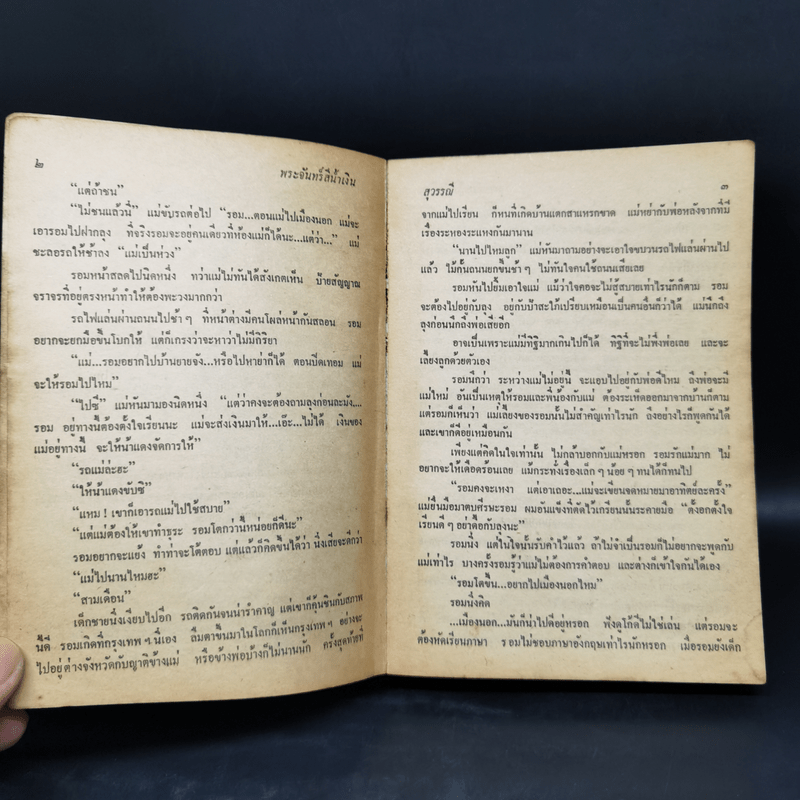 ๒
พระจันทร์สีน้ำเงิน
“แต่ถ้าชน”
“ไม่ชนแล้วนี่” แม่ขับรถต่อไป “รอม...ตอนแม่ไปเมืองนอก แม่จะ
เอารอมไปฝากลุง ที่จริงรอมจะอยู่คนเดียวที่ห้องแม่ก็ได้นะ...แต่ว่า...” แม่
ชะลอรถให้ช้าลง “แม่เป็นห่วง”
รอมหน้าสลดไปนิดหนึ่ง ทว่าแม่ไม่ทันได้สังเกตเห็น ป้ายสัญญาณ
จราจรที่อยู่ตรงหน้าทำให้ต้องพะวงมากกว่า
รถไฟแล่นผ่านถนนไปช้า ๆ ที่หน้าต่างมีคนโผล่หน้ากันสลอน รอม
อยากจะยกมือขึ้นโบกให้ แต่ก็เกรงว่าจะหาว่าไม่มีกิริยา
“แม่...รอมอยากไปบ้านยายจัง...หรือไปหาย่าก็ได้ ตอนปิดเทอม แม่
จะให้รอมไปไหม”
“ไปซี” แม่หันมามองนิดหนึ่ง “แต่ว่าคงจะต้องถามลุงก่อนละมัง....
รอม อยู่ทางนี้ต้องตั้งใจเรียนนะ แม่จะส่งเงินมาให้...เอ๊ะ...ไม่ได้ เงินของ
แม่อยู่ทางนี้ จะให้น้าแดงจัดการให้”
“รถแม่ล่ะฮะ”
“ให้น้าแดงขับซิ”
“แหม ! เขาก็เอารถแม่ไปใช้สบาย”
“แต่แม่ต้องให้เขาทำธุระ รอมโตกว่านี้หน่อยก็ดีนะ”
รอมอยากจะแย้ง ทำท่าจะโต้ตอบ แต่แล้วก็คิดขึ้นได้ว่า นิ่งเสียจะดีกว่า
“แม่ไปนานไหมฮะ”
“สามเดือน”
เด็กชายนิ่งเงียบไปอีก รถติดกันจนน่ารำคาญ แต่เขาก็คุ้นชินกับสภาพ
นี้ดี รอมเกิดที่กรุงเทพ ๆ นี่เอง ลืมตาขึ้นมาในโลกก็เห็นกรุงเทพ ๆ อย่างจะ
ไปอยู่ต่างจังหวัดกับญาติข้างแม่ หรือข้างพ่อบ้างก็ไม่นานนัก ครั้งสุดท้ายที่
สุวรรณี
๓
จากแม่ไปเรียน ก็หนที่เกิดบ้านแตกสาแหรกขาด แม่หย่ากับพ่อหลังจากที่มี
เรื่องระหองระแหงกันมานาน
“นานไปไหมลูก” แม่หันมาถามอย่างจะเอาใจขบวนรถไฟแล่นผ่านไป
แล้ว ไม้กั้นถนนยกขึ้นช้า ๆ ไม่ทันใจคนใช้ถนนเสียเลย
รอมหันไปยิ้มเอาใจแม่ แม้ว่าใจคอจะไม่สู้สบายเท่าไรนักก็ตาม รอม
จะต้องไปอยู่กับลุง อยู่กับป้าสะใภ้เปรียบเหมือนเป็นคนอื่นก็ว่าได้ แม่นึกถึง
ลุงก่อนนึกถึงพ่อเสียอีก
อาจเป็นเพราะแม่มีทิฐิมากเกินไปก็ได้ ทิฐิที่จะไม่พึ่งพ่อเลย และจะ
เลี้ยงลูกด้วยตัวเอง
รอมนึกว่า ระหว่างแม่ไม่อยู่นี้ จะแอบไปอยู่กับพ่อดีไหม ถึงพ่อจะมี
แม่ใหม่ อันเป็นเหตุให้รอมและพี่น้องกับแม่ ต้องระเห็ดออกมาจากบ้านก็ตาม
แต่รอมก็เห็นว่า แม่เลี้ยงของรอมนั้นไม่สำคัญเท่าไรนัก ถึงอย่างไรก็พูดกันได้
และเขาก็ดีอยู่เหมือนกัน
เพียงแต่คิดในใจเท่านั้น ไม่กล้าบอกกับแม่หรอก รอมรักแม่มาก ไม่
อยากจะให้เดือดร้อนเลย แม้กระทั่งเรื่องเล็ก ๆ น้อย ๆ ทนได้ก็ทนไป
“รอมคงจะเหงา แต่เอาเถอะ...แม่จะเขียนจดหมายมาอาทิตย์ละครั้ง”
แม่ยื่นมือมาตบศีรษะรอม ผมอ่อนแข็งที่ตัดไว้เกรียนนั้นระคายมือ “ตั้งอกตั้งใจ
เรียนดี ๆ อยาดื้อกับลุงนะ”
รอมนิ่ง แต่ในใจนั้นรับคำไว้แล้ว ถ้าไม่จำเป็นรอมก็ไม่อยากจะพูดกับ
แม่เท่าไร บางครั้งรอมรู้ว่าแม่ไม่ต้องการคำตอบ และต่างก็เข้าใจกันได้เอง
“รอมโตขึ้น...อยากไปเมืองนอกไหม”
รอมนิ่งคิด
...เมืองนอก...มันก็น่าไปดีอยู่หรอก ฟังดูโก้ดีไม่ใช่เล่น แต่รอมจะ
ต้องหัดเรียนภาษา รอมไม่ชอบภาษาอังกฤษเท่าไรนักหรอก เมื่อรอมยังเด็ก